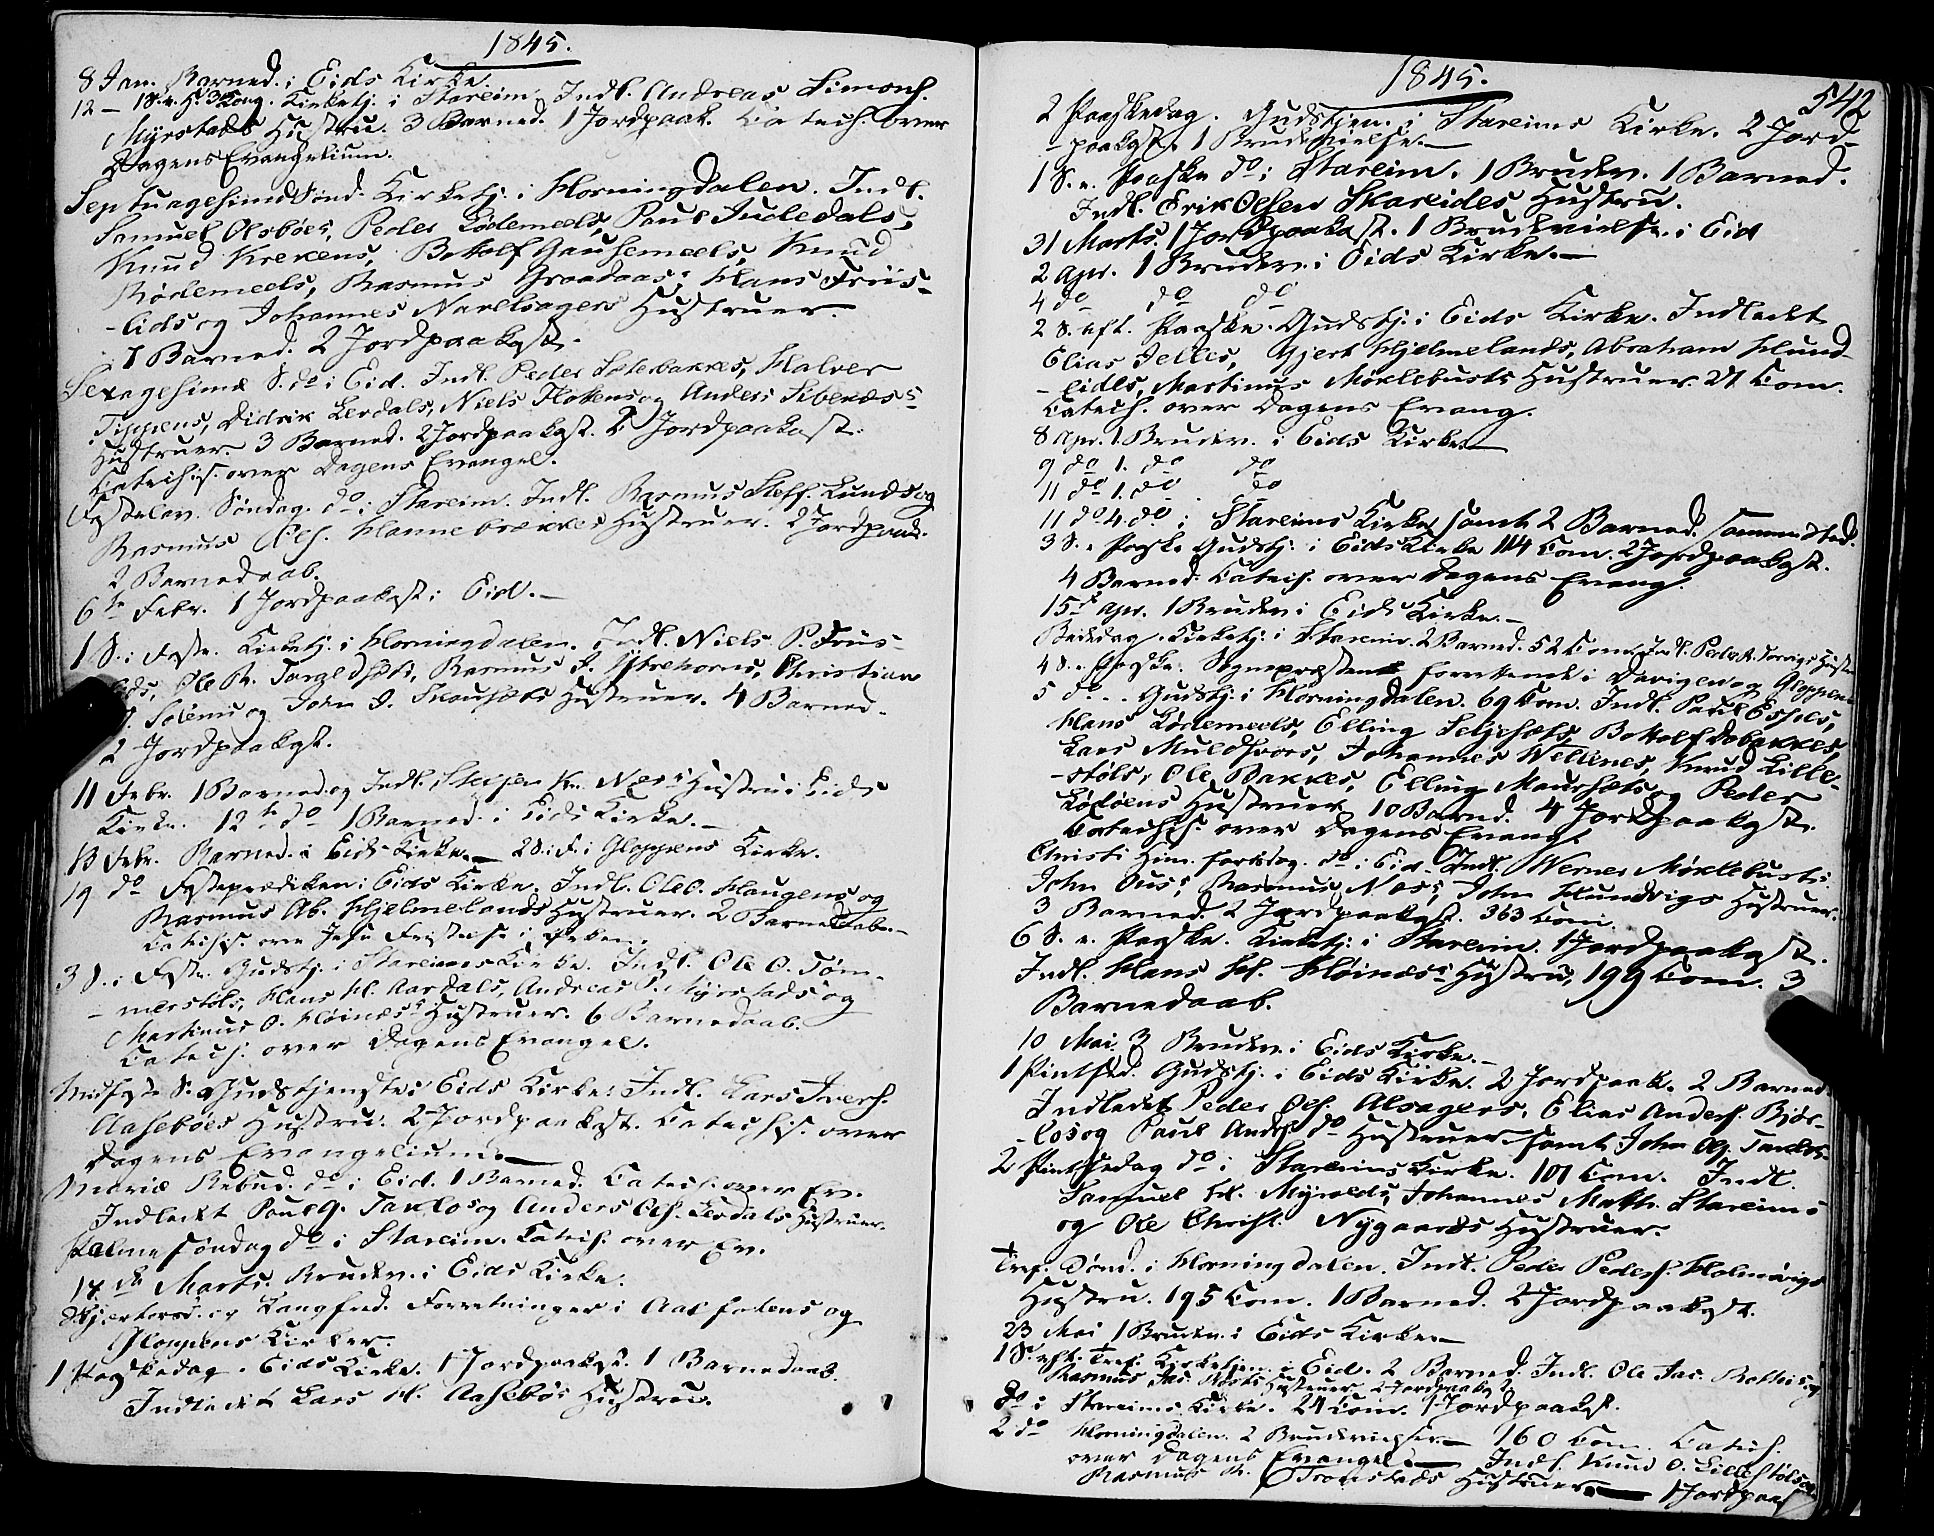 1845.
8 Jan. Barned. i Eids Kirke.
12 – 1 S. e. H. 3 Kong. Kirketj. i Stareim. Indl. Andreas Simons.
Myrstads Hustru. 3 Barned. 1 Jordpaak. Catech. over
Dagens Evangelium.
Septuagesima Sönd. Kirketj. i Horningdalen. Indl.
Samuel Otsböes, Peder Lödemeels, Paul
Knud Krekens, Bottolf Gausemeels, Knud
Rödemeels, Rasmus Graadaas, Hans Friis-
-lids og Johannes Navelsagers Hustruer.
1 Barned. 2 Jordpaakast.
Sexagesima S. do i Eid. Indl. Peder Sæterbakkes, Halvor
Tippens, Didrik Lerdals, Niels Flotens og Anders
Hustruer. 3 Barned. 2 Jordpaakast. 2 Jordpaakast.
Catechis. over Dagens Evangel.
Fastelav. Söndag. do i Stareim. Indl. Rasmus Steff. Lunds og
Rasmus Ols. Hannebrækkes Hustruer. 2 Jordpaak.
2 Barnedaab.
6te Febr. 1 Jordpaakast i Eid. –
1 S. i Faste. Kirketj. i Horningdalen. Indl. Niels P. Friis-
Ole R. Rasmus Ytrehorns, Christian
og John J. Hustruer. 4 Barned.
2 Jordpaakast.
11 Febr. 1 Barned. og Indl. Kn. Næss Hustru i Eids
Kirke. 12te do 1 Barned. i Eids Kirke. –
13 Febr. Barned. i Eids Kirke. – 2 S. i F. i Gloppens Kirke.
19 do Fasteprædiken i Eids Kirke. Indl. Ole O. Haugens og
Rasmus Ab. Hjelmelands Hustruer. 2 Barnedaab. –
Catechis. over Jesu Fristelse i Ørken.
3 S. i Faste. Gudstj. i Stareims Kirke. Indl. Ole O. Töm-
-merstöls, Hans H. Aardals, Andreas S. Myrstads og
Martinus O. Höinæss Hustruer. 6 Barnedaab.
Catech. over Dagens Evangel.
Midfaste S. Gudstjeneste i Eids Kirke. Indl. Lars Ivers.
Aaseböes Hustru. 2 Jordpaakast. Catechis. over
Dagens Evangelium.
Mariæ Bebud. do i Eid. 1 Barned. Catech. over Ev.
Indledet Paul G. Taklos og Anders Ols. Hustruer.
Palme Söndag do i Stareim. Catech. over Ev.
17. de Marts. Brudev. i Eids Kirke.
Skjertorsd. og Langfred. Forretninger i og
Gloppens Kirker.
1 Paaskedag. Eids Kirke. 1 Jordpaakast. 1 Barnedaab.
Indledet Lars H. Aaseböes Hustru.
1845.
542
2 Paaskedag. Gudstjen. i Stareims Kirke. 2 Jord-
-paakast. 1 Brudevielse. –
1 S. e. Paaske do i Stareim. 1 Brudev. 1 Barned.
Indl. Erik Olsen Skareides Hustru.
31 Marts. 1 Jordpaakast. 1 Brudevielse i Eid
2 Apr. 1 Brudev. i Eids Kirke. –
4 do do do
2 S. eft. Paaske. Gudstj. i Eids Kirke. Indledet
Elias Gjert Hjelmelands, Abraham Hund-
-eides, Martinus Möklebusts Hustruer. 21 Com.
Catech. over Dagens Evang.
8 Apr. 1 Brudev. i Eids Kirke. –
9 do 1. do do
11 do 1. do do
11 do 4 do i Stareims Kirke samt 2 Barned. sammested.
3 S. e. Paaske Gudstj. i Eids Kirke 114 Com. 2 Jordpaakast.
4 Barned. Catech. over Dagens Evang.
15de Apr. 1 Brudev. i Eids Kirke. –
Bededag. Kirketj. i Stareim. 2 Barned. 52 Com. Indl. Peder R. Hustru
4 S. e. Paaske. Sognepræsten forrettende i Davigen og Gloppen
5 do . . Gudstj. i Horningdalen. 69 Com. Indl. Paul
Hans Lödemeels, Elling Seljesæts, Bottolf
Lars Muldsvors, Johannes Knud Lille-
-stöls, Ole Bakkes, Elling Maursæts og Peder
Hustruer. 10 Barned. 4 Jordpaakast.
Catechis. over Dagens Evang.
Christi Him. fartsdag. do i Eid. Indl. Werner Möklebusts
John Ous, Rasmus Næss, John Hundvigs Hustruer.
3 Barned. 2 Jordpaakast. 363 Com.
6 S. e. Paaske. Kirketj. i Stareim. 1 Jordpaakast.
Indl. Hans H. Höinæss Hustru, 199 Com. 3
Barnedaab.
10 Mai. 3 Brudev. i Eids Kirke. –
1 Pintsed. Gudstj. i Eids Kirke. 2 Jordpaak. 2 Barned.
Indledet Peder Ols. Alsagers, Elias Anders. Björ-
-los og Paul Anders. do Hustruer samt John Og.
2 Pintsedag do i Stareims Kirke. 101 Com. Indl.
Samuel H. Myrolds, Johannes Math. Stareims
og Ole Christ. Nygaards Hustruer.
Tref. Sönd. i Horningdalen. Indl. Peder Peders. Holmövigs
Hustru. 195 Com. 1 Barned. 2 Jordpaakast.
23 Mai 1 Brudev. i Eids Kirke. –
1 S. eft. Tref. Kirketjen. i Eid. 2 Barned. Indl. Ole Jac.
Rasmus Jac. Hustruer. 2 Jordpaakast.
do i Stareims Kirke. 21 Com. 1 Jordpaakast.
2 do Horningdalen. 2 Brudevielser. – 160 Com. Catech.
over Dagens Evangel. – Indl. Knud O. Lillestöls og
Rasmus R. Hustruer. – 1 Jordpaak